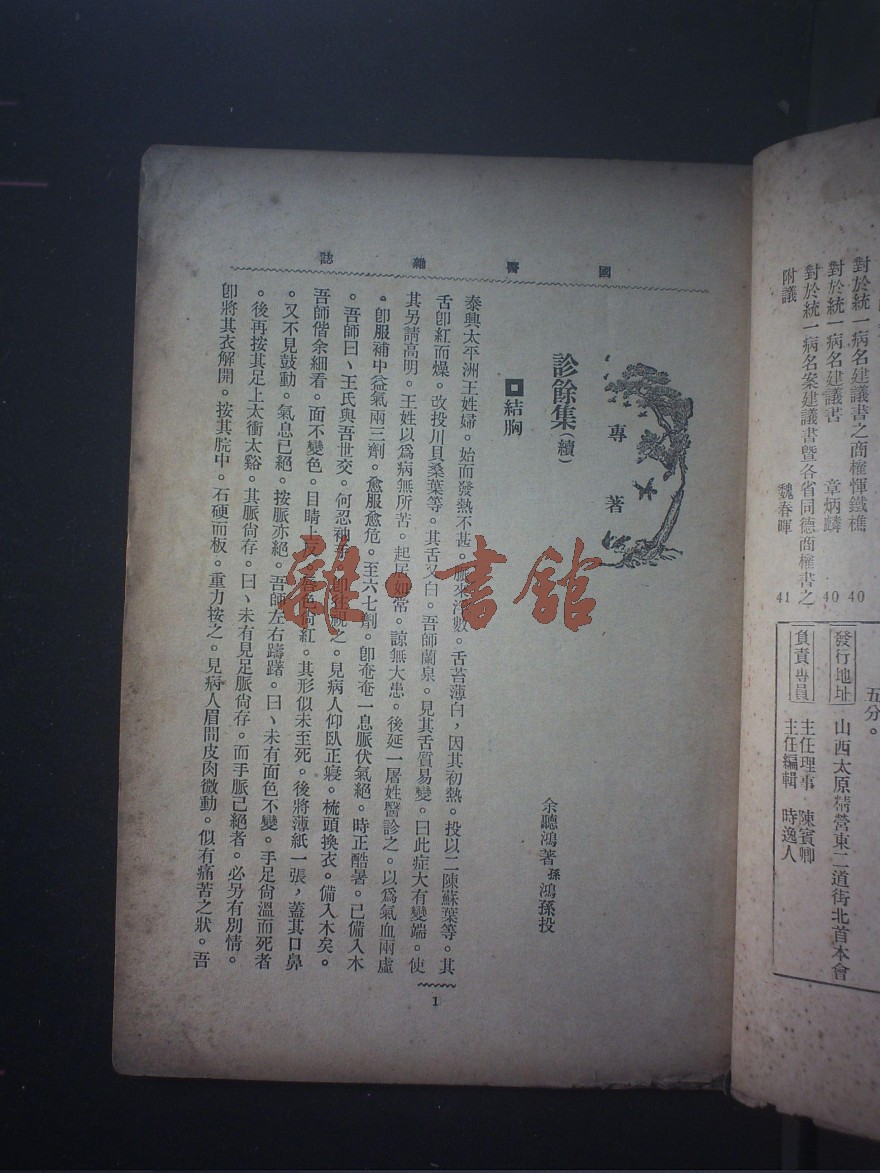 對於統一病名建議書之商榷惲鐵樵 40
對於統一病名建議書 章炳麟 40
對於統一病名案建議書暨各省同德商榷書之
附議 魏春暉 41
五分。
發行地址 山西太原精營東二道街北首本會
負責專員 主任理事 陳賓卿
主任編輯 時逸人
國醫雜誌
專著
診餘集(續)
余聽鴻著 孫 鴻孫投
結胸
泰興太平洲王姓婦。始而發熱不甚。脈來浮數。舌苔薄白,因其初熱。投以二陳蘇葉等。其
舌卽紅而燥。改投川貝桑葉等。其舌又白。吾師蘭泉。見其舌質易變。曰此症大有變端。使
其另請高明。王姓以爲病無所苦。起居如常。諒無大患。後延一屠姓醫診之。以爲氣血兩虛
。卽服補中益氣兩三劑。愈服愈危。至六七劑。卽奄奄一息脈伏氣絕。時正酷暑。已備入木
。吾師曰、王氏與吾世交。何忍袖手。卽往視之。見病人仰臥正寢。梳頭換衣。備入木矣。
吾師偕余細看。面不變色。目睛上反。唇色尙紅。其形似未至死。後將薄紙一張,蓋其口鼻
。又不見鼓動。氣息已絕。按脈亦絕。吾師左右躊躇。曰、未有面色不變。手足尙溫而死者
。後再按其足上太衝太谿。其脈尙存。曰、未有見足脈尙存。而手脈已絕者。必另有別情。
卽將其衣解開。按其脘中。石硬而板。重力按之。見病人眉間皮肉微動。似有痛苦之狀。吾
1
雜·書館